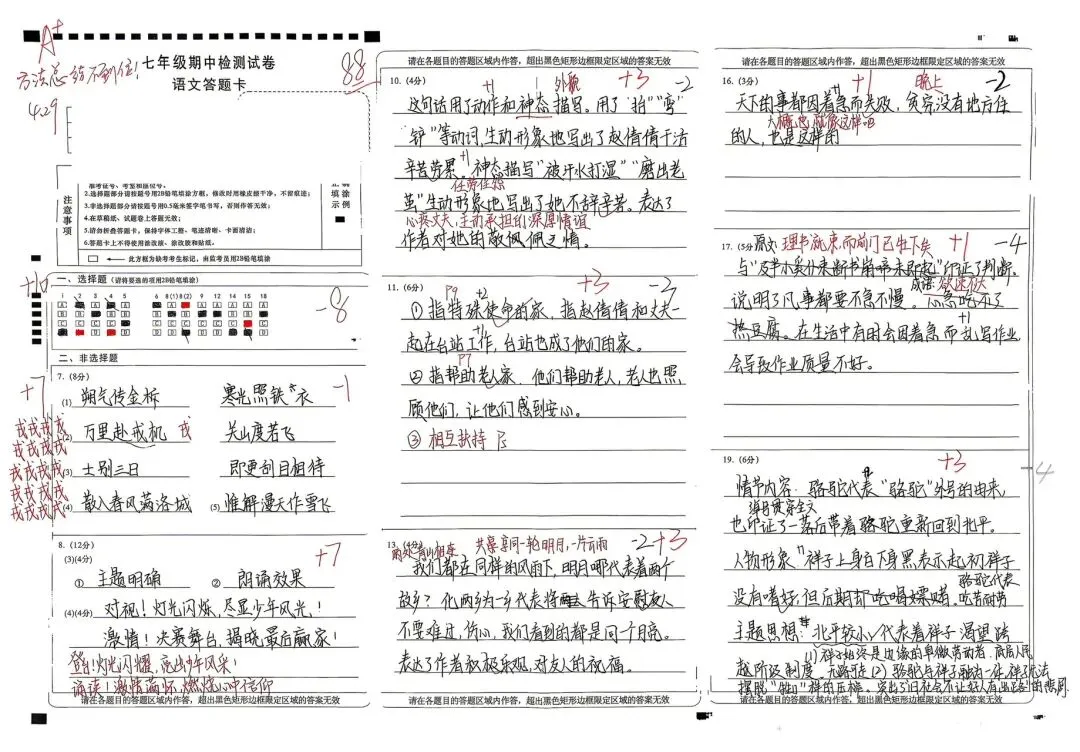 A+
方法总结不到位!
4.29
七年级期中检测试卷
语文答题卡
88
注意事项
准考证号、考室和座位号。
2.选择题部分请按题号用2B铅笔填涂方框,修改时用橡皮擦干净,不留痕迹;
3.非选择题部分请按题号用0.5毫米签字笔书写,否则作答无效;
4.在草稿纸、试题卷上答题无效;
5.请勿折叠答题卡,保持字体工整、笔迹清晰、卡面清洁;
6.答题卡上不得使用涂改液、涂改胶和贴纸。
填涂示例
此方框为缺考考生标记,由监考员用2B铅笔填涂
+10
一、选择题(请将要选的项用2B铅笔填涂)
1 2 3 4 5 6 8(1) 8(2) 9 12 14 15 18
-8
二、非选择题
7.(8分)
+7
-1
(1) 朔气传金柝 寒光照铁衣
(2) 万里赴戎机 戎 关山度若飞
(3) 士别三日 即更刮目相待
(4) 散入春风满洛城 (5) 惟解漫天作雪飞
戎戎戎戎
戎戎戎戎
戎戎戎戎
戎戎戎戎
戎戎戎戎
8.(12分)
+7
(3)(4分)
① 主题明确 ② 朗诵效果
(4)(4分) 对视!灯光闪烁,尽显少年风光!
激情!决赛舞台,揭晓最后赢家!
灯光闪耀,
诵读!激情满怀,燃烧心中信仰
请在各题目的答题区域内作答,超出黑色矩形边框限定区域的答案无效
请在各题目的答题区域内作答,超出黑色矩形边框限定区域的答案无效
10.(4分)
+1 外貌 +3 -2
这句话用了动作和神态描写。用了"抬""弯"
"铲"等动词,生动形象地写出了赵倩倩干活
辛苦劳累。神态描写"被汗水打湿""磨出老
+1
任劳任怨
茧"生动形象地写出了她不辞辛苦。表达了
心疼丈夫,主动承担的深厚情谊
作者对她的敬佩之情。
11.(6分)
P9 +2 +3 -3
①指特殊使命的家,指赵倩倩和丈夫一
起在台站工作,台站也成了他们的家。
+1
P7
②指帮助老人家,他们帮助老人,老人也照
顾他们,让他们感到安心。
③相互扶持
13.(4分)
共享同一轮明月,一片云雨
-2 +3
我们都在同样的风雨下,明月哪代表着两个
故乡?化两乡为一乡代表将告诉安慰友人
不要难过,伤心,我们看到的都是同一个月亮。
表达了作者积极乐观,对友人的祝福。
请在各题目的答题区域内作答,超出黑色矩形边框限定区域的答案无效
请在各题目的答题区域内作答,超出黑色矩形边框限定区域的答案无效
16.(3分)
+1 晚上 -2
天下的事都因着急而失败,贫穷没有地方住
大概也就像这样吧
的人,也是这样的
17.(5分)
原文:理书就束而前门已牡下矣
+1 -4
与"及半小奚仆束断书崩啼未即起"印证了判断。
成语:欲速不达
说明了凡事都要不急不慢。心急吃不了
热豆腐。在生活中有时会因着急而乱写作业
+1
会导致作业质量不好。
19.(6分)
+3
-4
情节内容:骆驼代表"骆驼"外号的由来,
也印证了一落后带着骆驼重新回到北平。
人物形象:祥子上身白下身黑表示起初祥子
骆驼代表
没有嗜好,但后期却吃喝嫖赌。吃苦耐劳
主题思想:北平较小,代表着祥子渴望跨
越阶级制度。
(1)祥子始终是边缘的卑微劳动者,底层人民
无路可走(2)骆驼与祥子融为一体,祥子无法
请在各题目的答题区域内作答,超出黑色矩形边框限定区域的答案无效